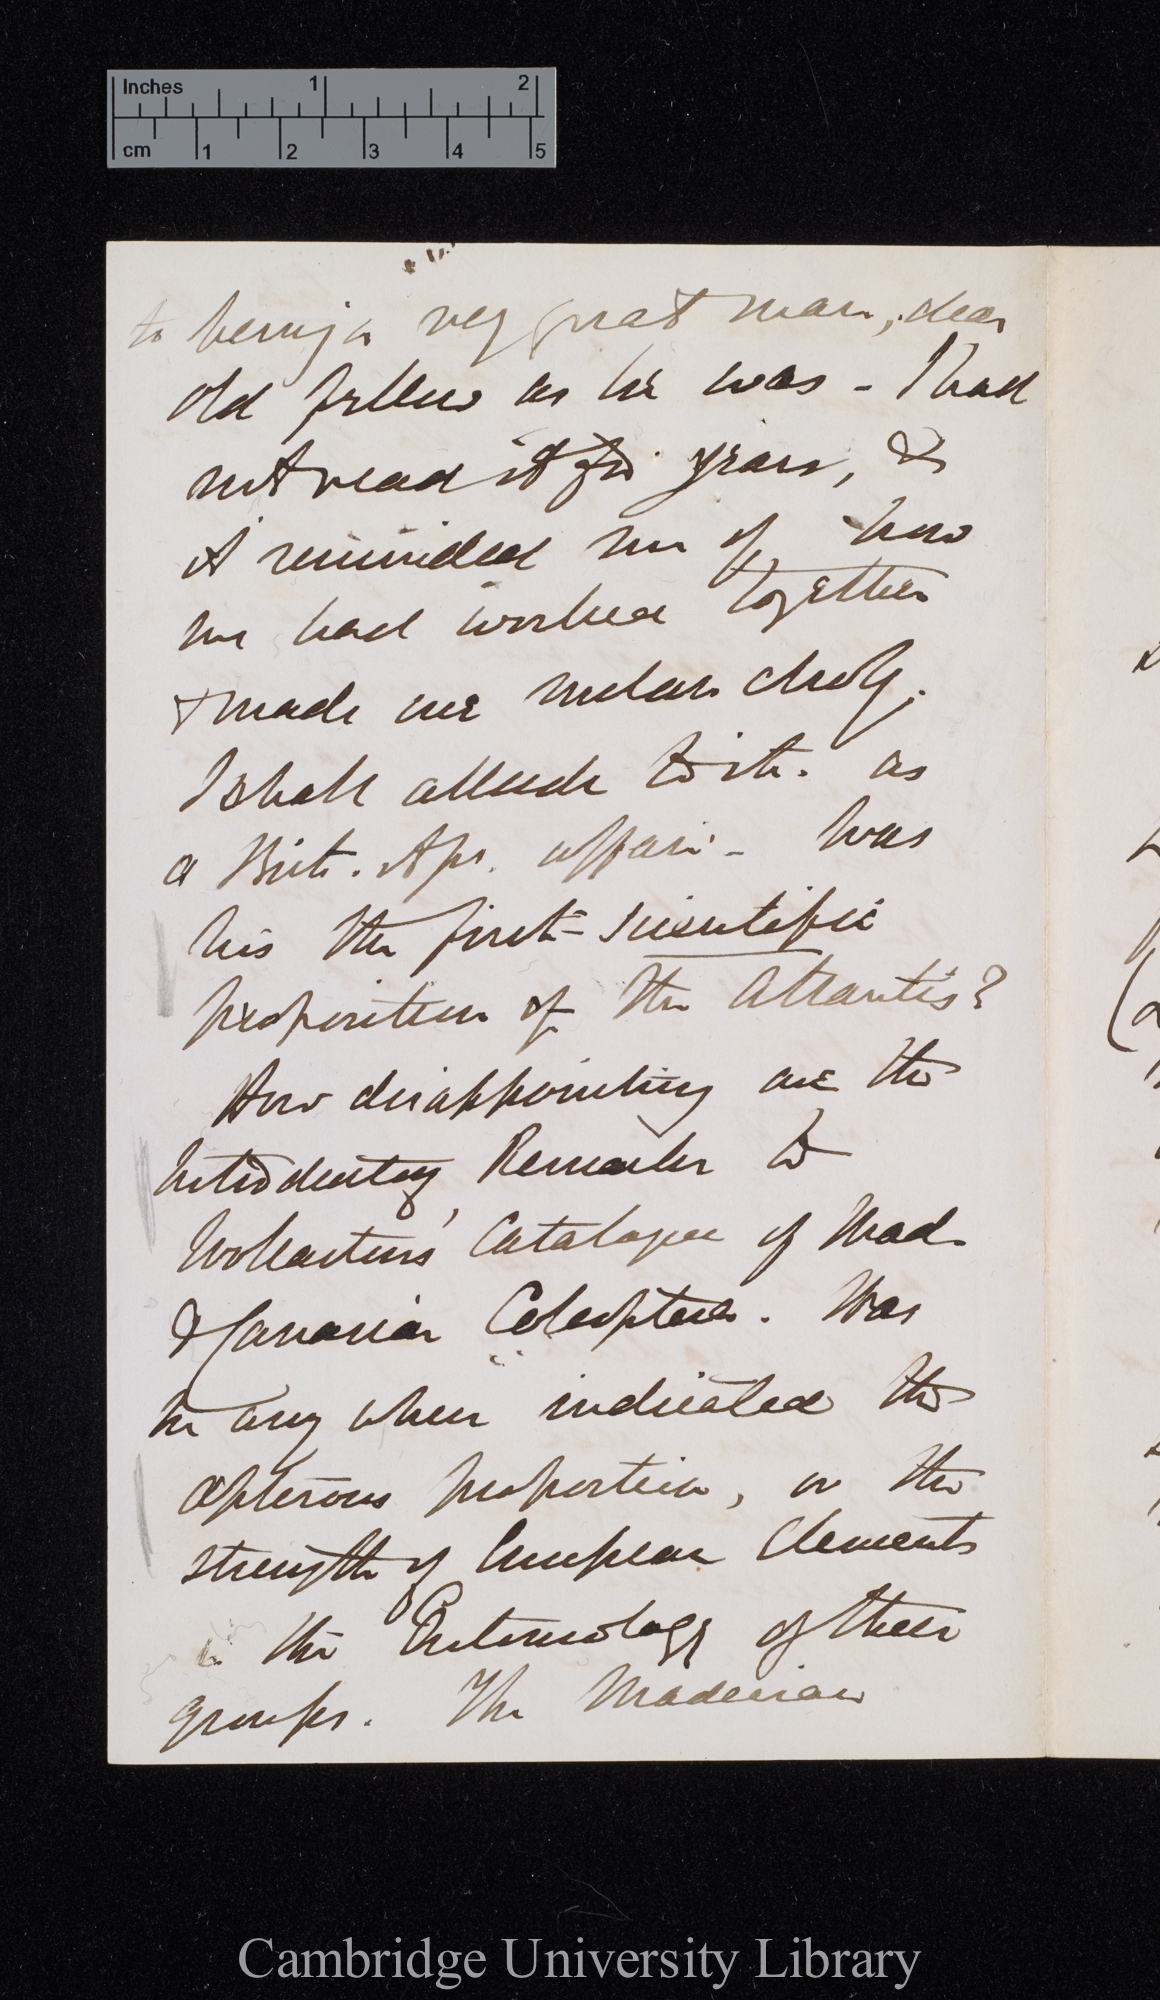 Inches 1 2
cm 1 2 3 4 5
to being a very great man, dear
old fellow as he was – I had
not read it for years, &
it reminded me of how
we had worked together
& made me melancholy.
I shall allude to it. as
a Brit. Assn. affair – Was
his the first scientific
proposition of the Atlantis?
How disappointing are the
Introductory Remarks to
Wollaston's Catalogue of Mad.
& Canarian Coleoptera. Has
he any where indicated the
apterous proportion, or the
strength of European Elements
in the Entomology of these
groups. The Madeiran
Cambridge University Library